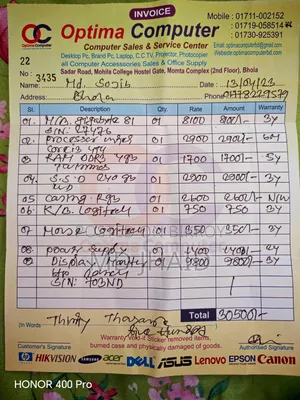 INVOICE
OC
Optima Computer
Computer Sales & Service Center
Mobile : 01711-002152
01719-058514
01730-925391
Desktop Pc, Brand Pc, Laptop, C.C TV, Projector, Photocopier
all Computer Accessories Sales & Office Supply
Sadar Road, Mohila College Hostel Gate, Momta Complex (2nd Floor), Bhola
22
No 3435
Name : Md. Sojib
Date : 13/04/23
Address : Bhola
Phone
Sl. Description Qty Rate Amount Warranty
01. M/B. gigabyte 81 01 8100 8100/- 3y
02. Processor 01 2900 2900/- 6M
03. RAM DDR3 4gb 01 1700 1700/- 5y
04. S.S.D 240 gb 01 2900 2900/- 3y
05 Casing Rgb 01 2600 2600/- N/W
06. K/B. Logitech 01 750 750 3y
07 Mouse Logitech 01 350 350/- 3y
08. Power Supply 01 1400 1400/- 2y
Display 01 9800 9800/- 3y
Total 30500/-
(In Words Thirty Thousand
Five Hundred
Warranty Void-it Sticker removed items,
burned case and physically damaged of goods.
Customer's Signature
Authorized Signature
hp HIKVISION SAMSUNG acer DELL ASUS Lenovo EPSON Canon
HONOR 400 Pro